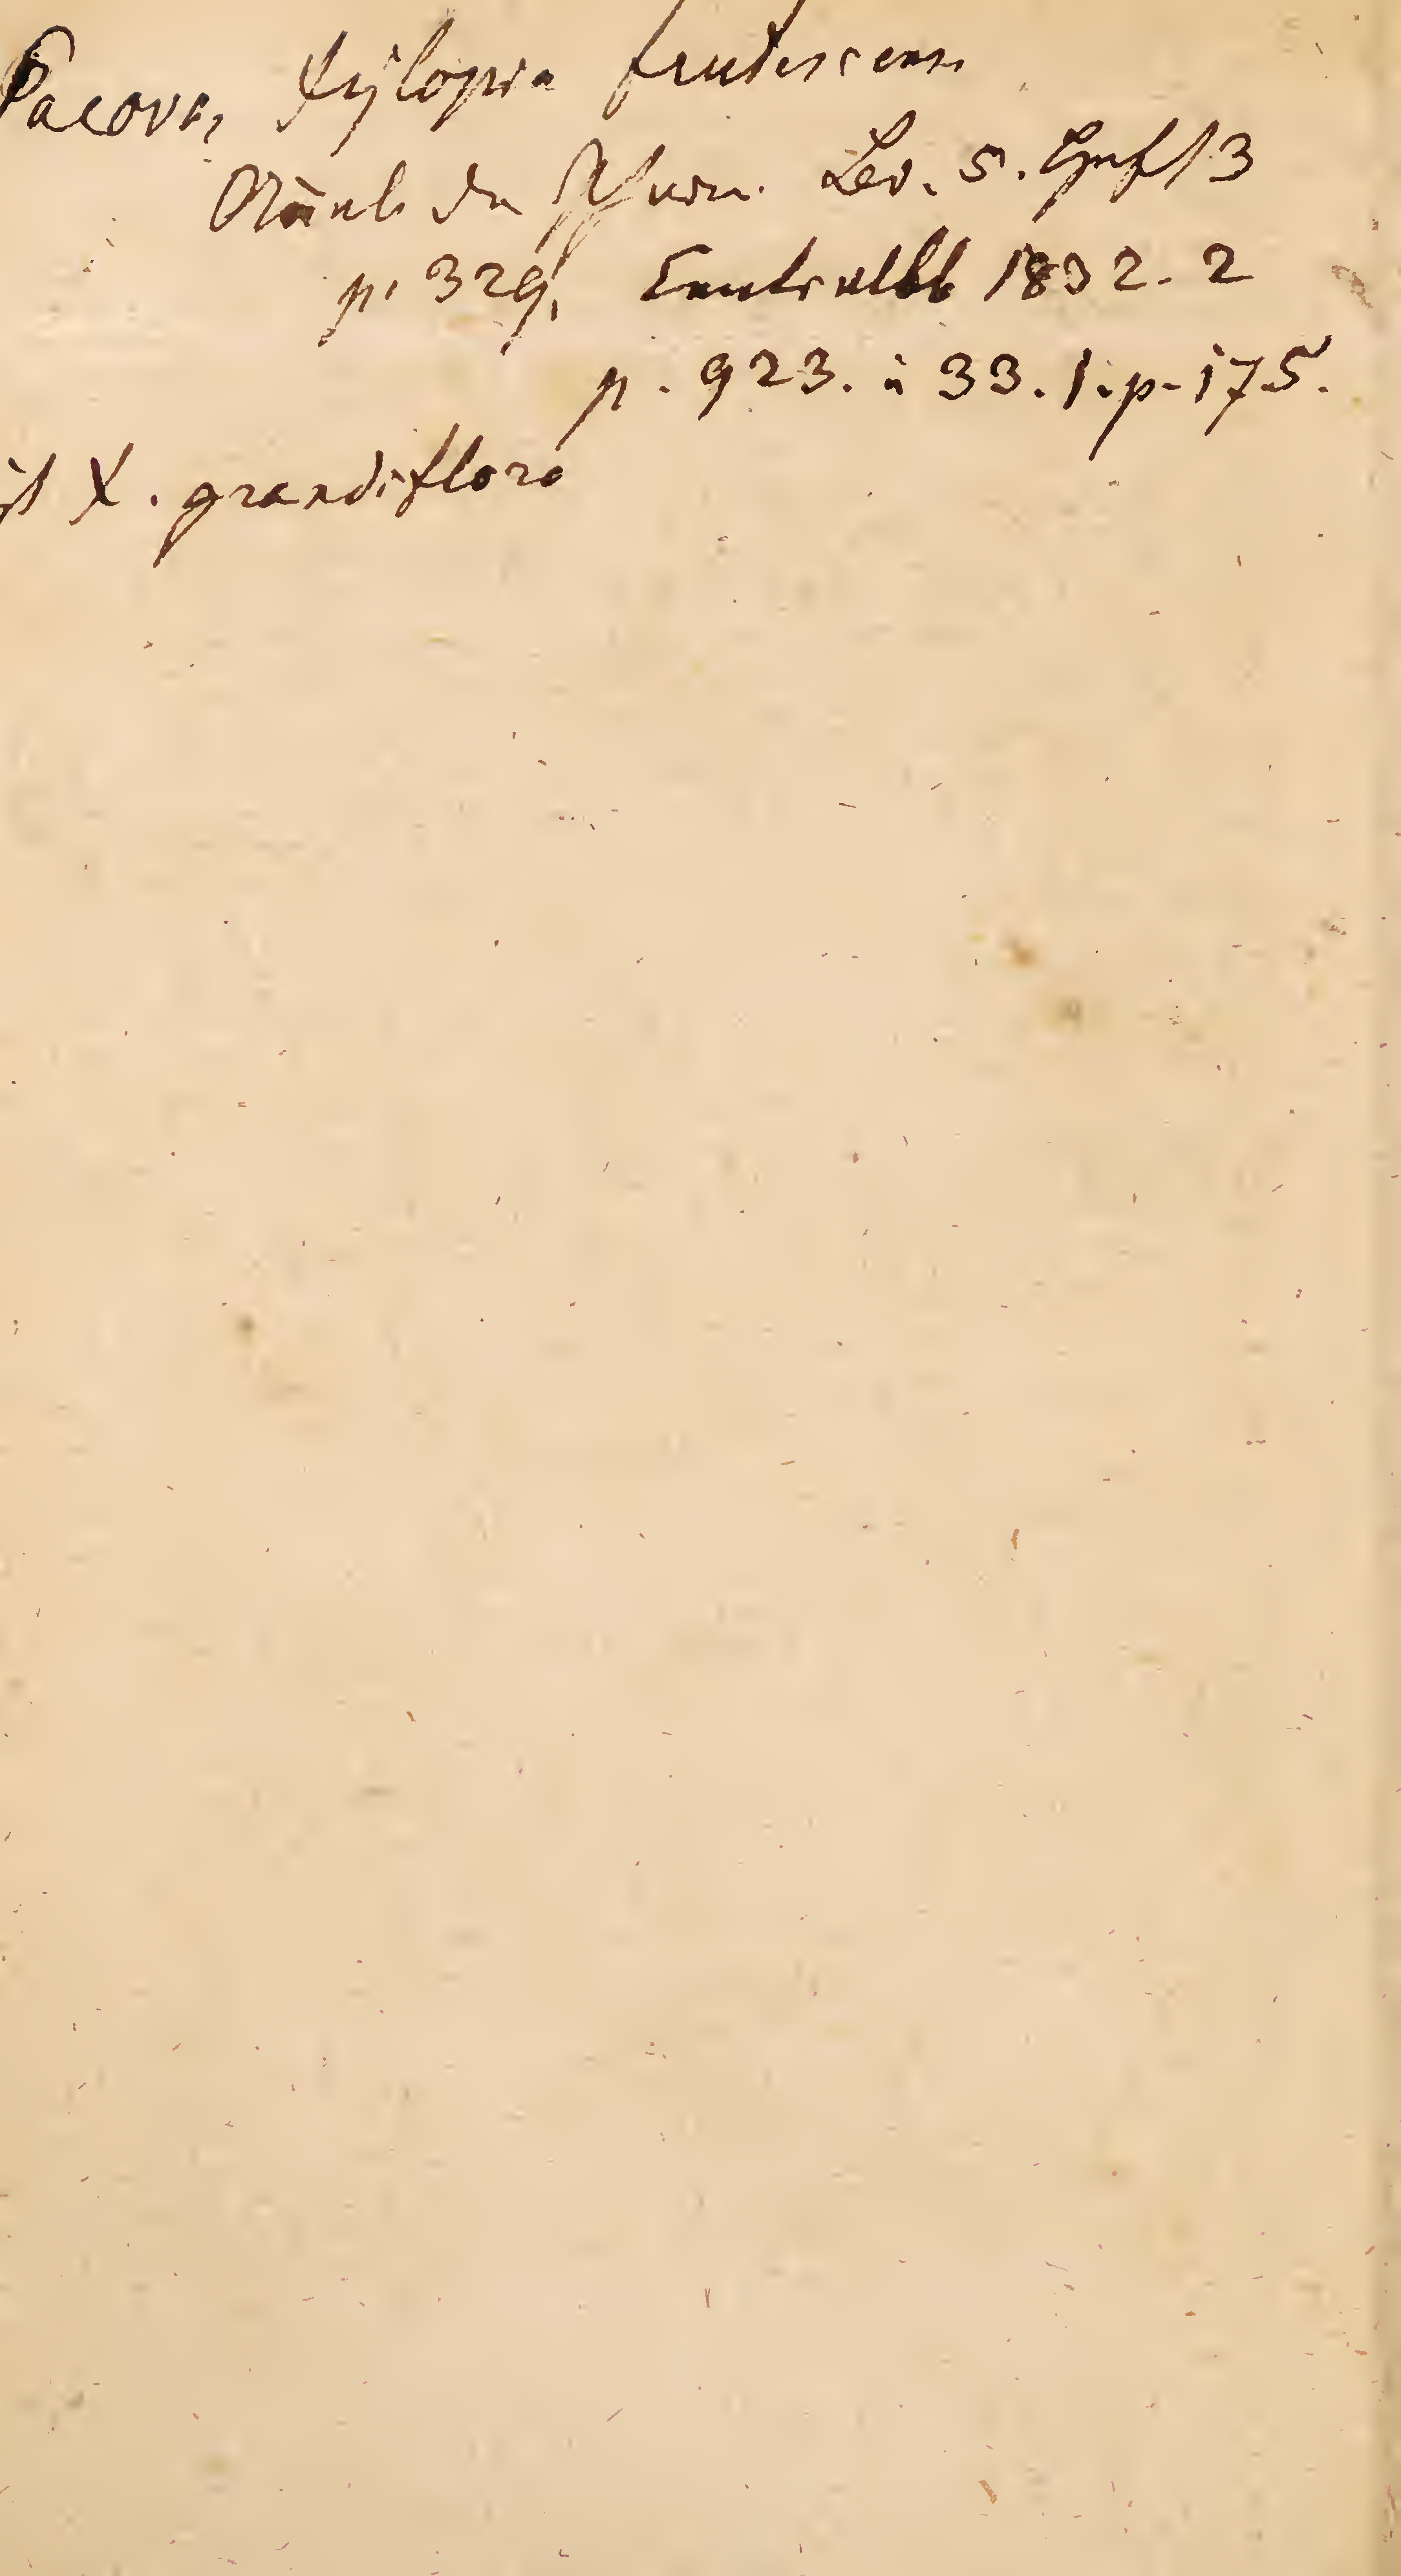 Pacova, Xylopia frutescens
Annal. der Pharm. Bd. 5. Heft 3
p. 329. Centralbl 1832. 2
p. 923. u 33. 1. p. 175.
ist X. grandiflora